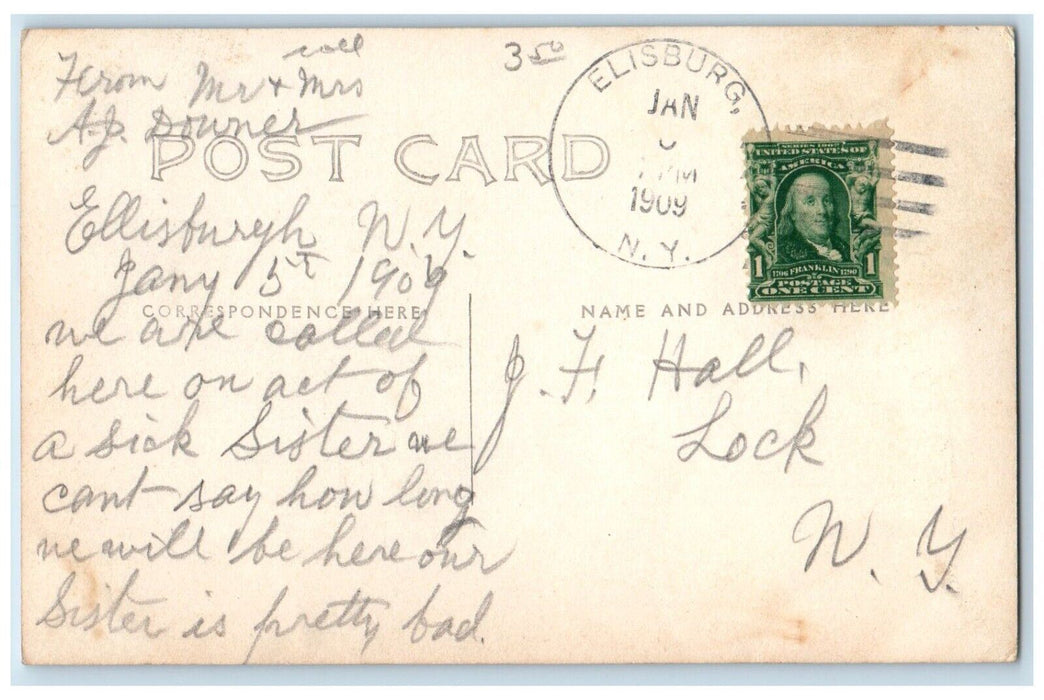 From Mr & Mrs
A.J. Downer
POST CARD
3 50
ELISBURG,
JAN
PM
1909
N. Y.
SERIES 1902
UNITED STATES OF
AMERICA
1 1
1706 FRANKLIN 1790
POSTAGE
ONE CENT
Ellisburgh N.Y.
Jany 5T 1909
CORRESPONDENCE HERE
we are called
here on act of
a sick Sister we
cant say how long
we will be here our
Sister is pretty bad.
NAME AND ADDRESS HERE
J. F. Hall,
Lock
N. Y.